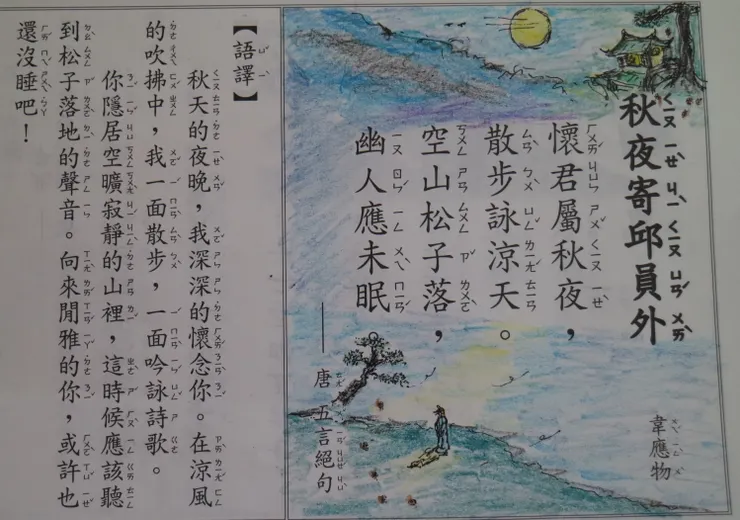 秋夜寄邱員外
韋應物
懷君屬秋夜，
散步詠涼天。
空山松子落，
幽人應未眠。
——唐 五言絕句
【語譯】
秋天的夜晚，我深深的懷念你。在涼風
的吹拂中，我一面散步，一面吟詠詩歌。
你隱居空曠寂靜的山裡，這時候應該聽
到松子落地的聲音。向來閒雅的你，或許也
還沒睡吧！